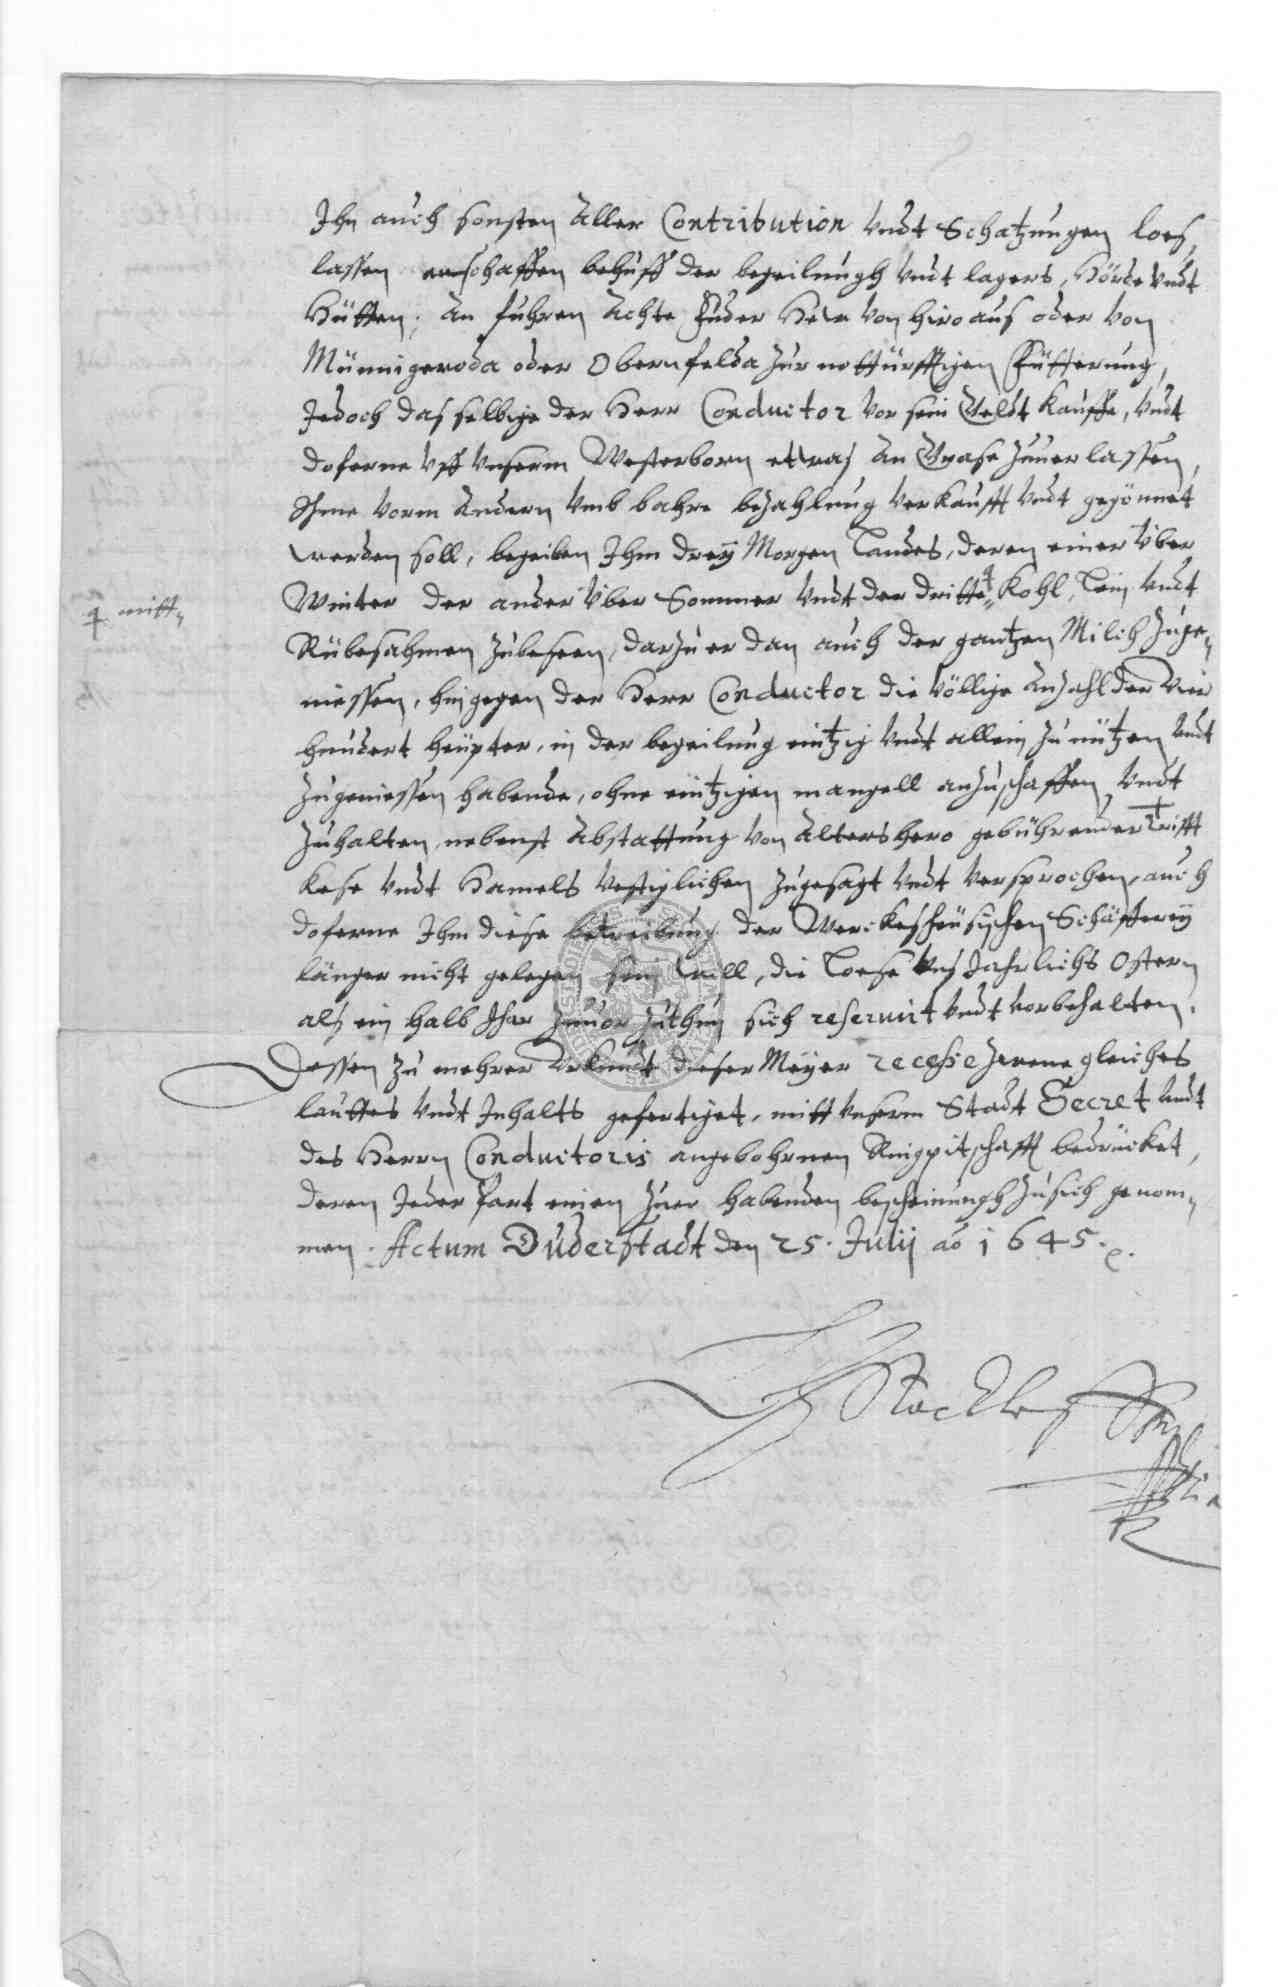 Ihn auch sonsten aller Contribution undt Schatzungen loeß,
lassen anschaffen behuff der begeilungh undt lagers, Hörde undt
Hütten, An fuhren Achte fuder Hew von hiro auß oder von
Münnigeroda oder Obernfelda zur notturfftigen Fütterung,
Jedoch daß selbige der Herr Conductor vor sein Geldt kauffe, undt
doferne uff unserm Westerborn etwaß an Graße zuuerlassen,
Ihme vorm Andern umb bahre bezahlung verkaufft undt gegönnet
werden soll, begeilen Ihm drey Morgen Landes, deren einer über
Winter der ander über Sommer undt der dritte Kohl, Lein undt
mitt
Rübesahmen zubeseen, darzu er dan auch der gantzen Milch zuge-
niessen, hingegen der Herr Conductor die völlige Anzahl der Vier
hundert heüpter, in der begeilung eintzig undt allein zu nützen undt
zugeniessen habende, ohne eintzigen mangell anzuschaffen undt
zuhalten, nebenst Abstattung von Altershero gebührender Trifft
Kese undt Hamels vestiglichen zugesagt undt versprochen, auch
doferne Ihm diese betreibung der Werckesheüsischen Schäfferey
länger nicht gelegen sein will, die Loese unß Jahrlichs Ostern
alß ein halb Jhar zuuor zuthun sich reseruirt undt vorbehalten.
Dessen zu mehrer Urkundt dieser Meyer recesse zwene gleiches
lauttes undt Inhalts gefertiget, mitt unserm Stadt Secret undt
des Herrn Conductoris angebohrnen Ringpitschafft bedrücket,
deren Jeder Part einen zuer habenden bescheinungh zu sich genom-
men. Actum Duderstadt den 25. Julij ao 1645.